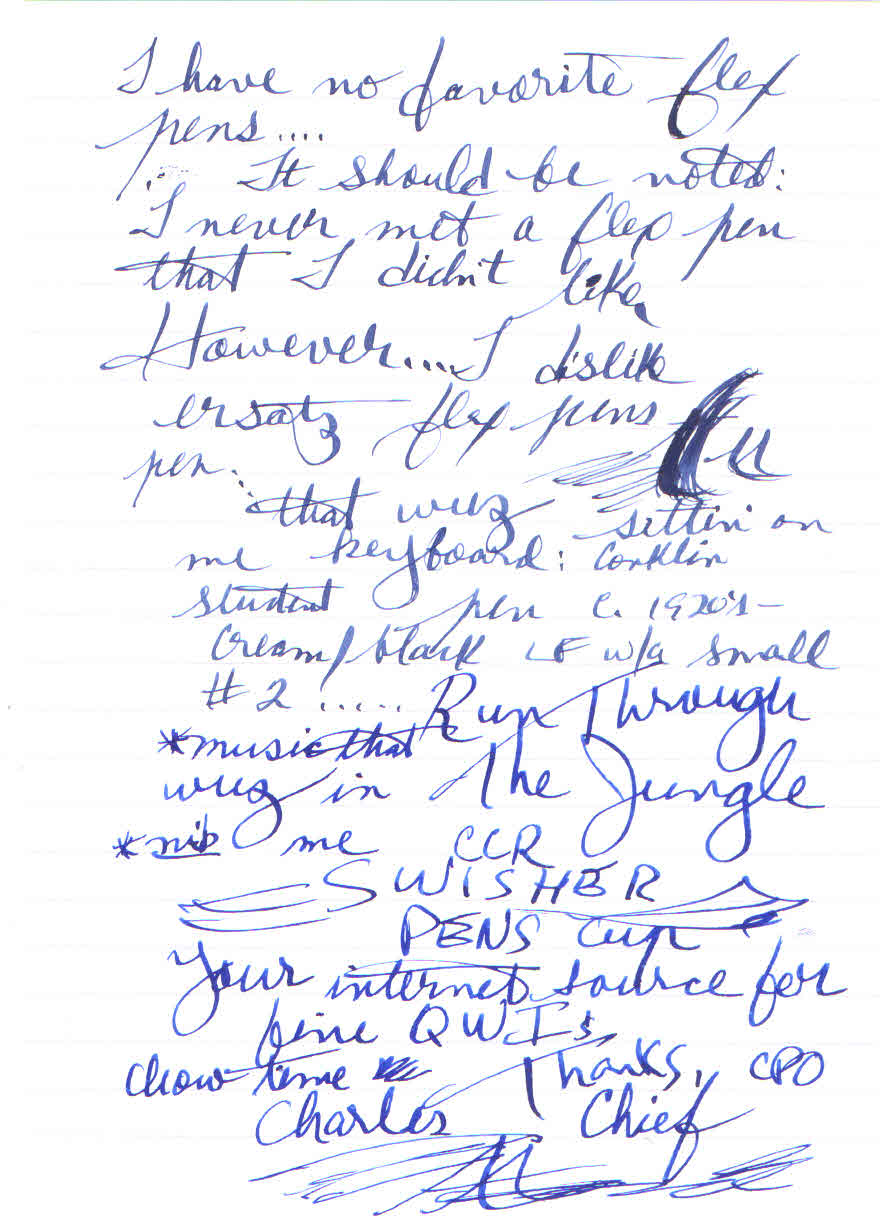 I have no favorite flex
pens....
It should be noted:
I never met a flex pen
that I didn't like
However....I dislike
ersatz flex pens
pen.
that wuz sittin' on
me keyboard: Conklin
student pen c. 1920's-
Cream/black LF w/a small
#2 ..... Run Through
*music that
wuz in The Jungle
*nib me CCR
SWISHER
PENS cup
Your internet source for
fine QWIs
chow time Thanks, CPO
Charles Chief